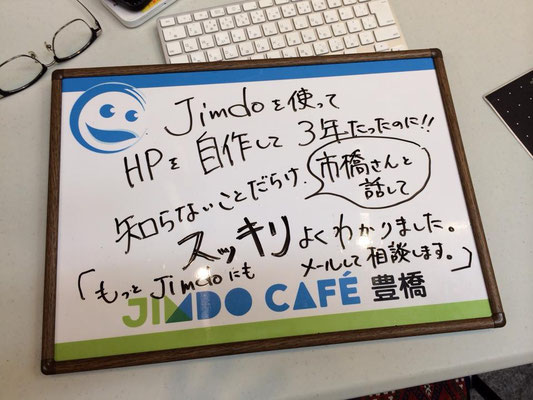 Jimdoを使って
HPを自作して3年たったのに!!
知らないことだらけ.
市橋さんと
話して
スッキリよくわかりました。
「もっとJimdoにも
メールして相談します。」
JIMDO CAFÉ 豊橋